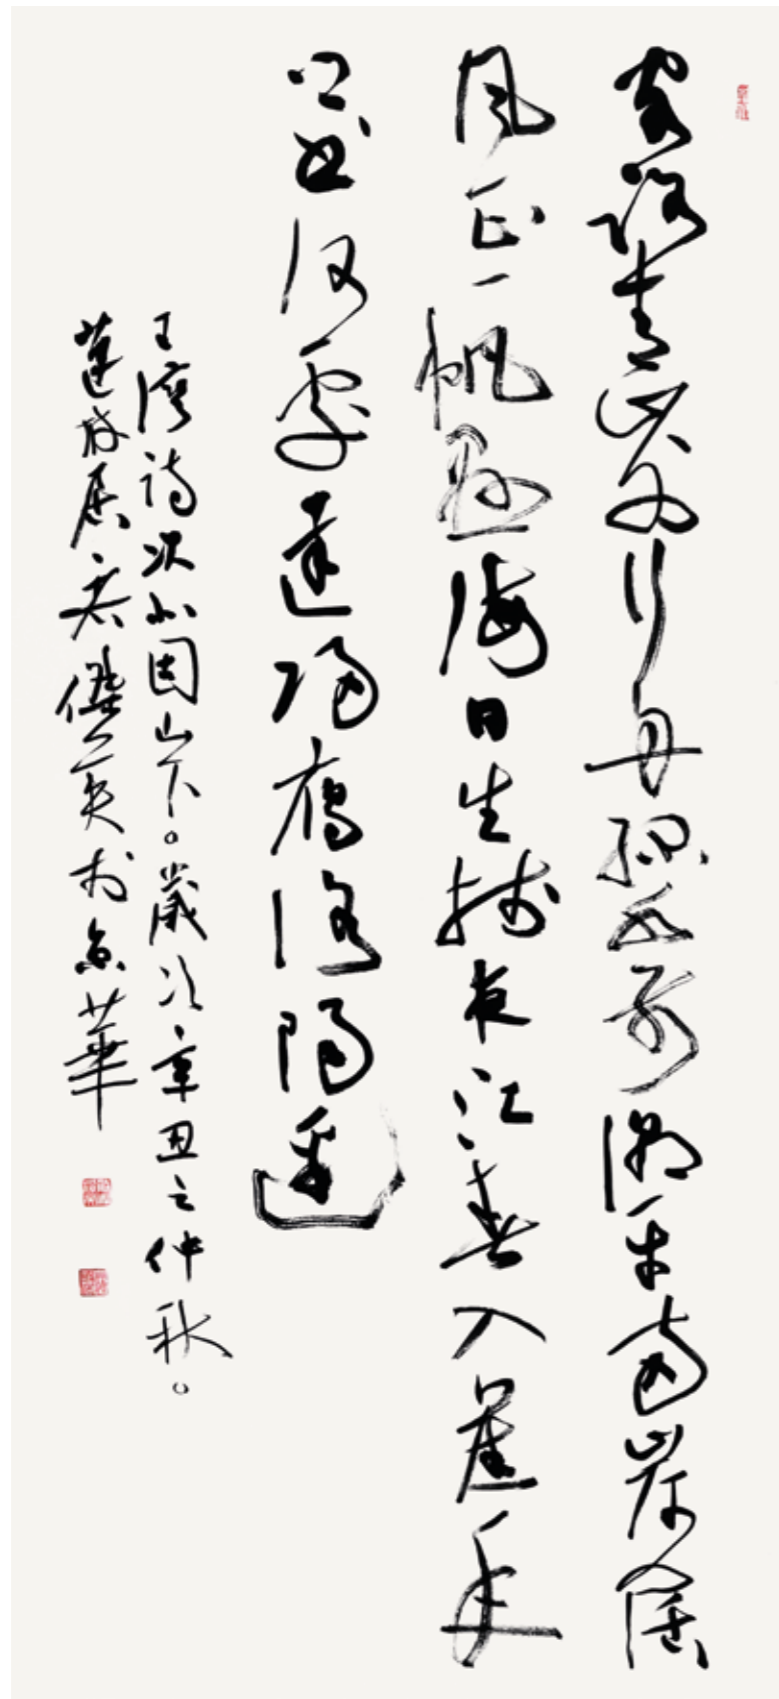 客路青山外行舟綠水前潮平兩岸闊
風正一帆懸海日生殘夜江春入舊年
鄉書何處達歸雁洛陽邊
王灣詩次北固山下。歲次辛丑之仲秋。
傑英於京華